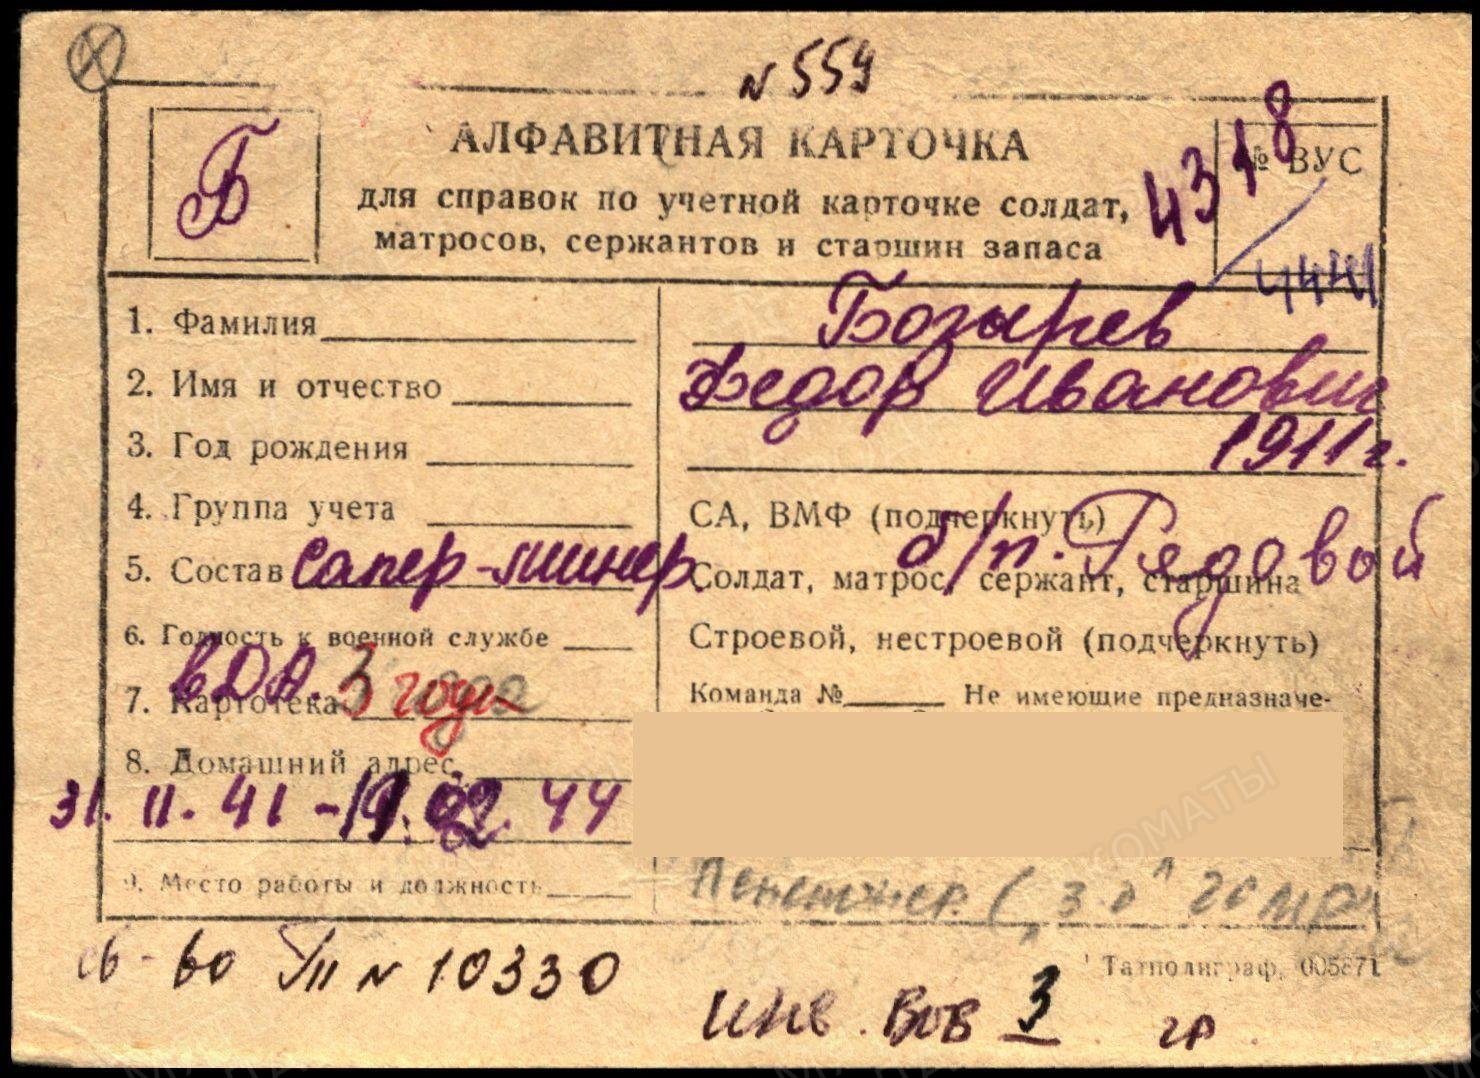 N 559
Б
АЛФАВИТНАЯ КАРТОЧКА
для справок по учетной карточке солдат,
матросов, сержантов и старшин запаса
4318
№ ВУС
1. Фамилия Бозырев
2. Имя и отчество Федор Иванович
3. Год рождения 1911г.
4. Группа учета СА, ВМФ (подчеркнуть)
б/п. Рядовой
5. Состав сапер-минер. Солдат, матрос, сержант, старшина
6. Годность к военной службе Строевой, нестроевой (подчеркнуть)
вДА. 3 года
7. Картотека Команда № Не имеющие предназначе-
8. Домашний адрес
31. 11. 41 - 19. 02. 44
9. Место работы и должность Пенсионер
св-во N 10330
Татполиграф, 005871
инв. Вов 3 гр